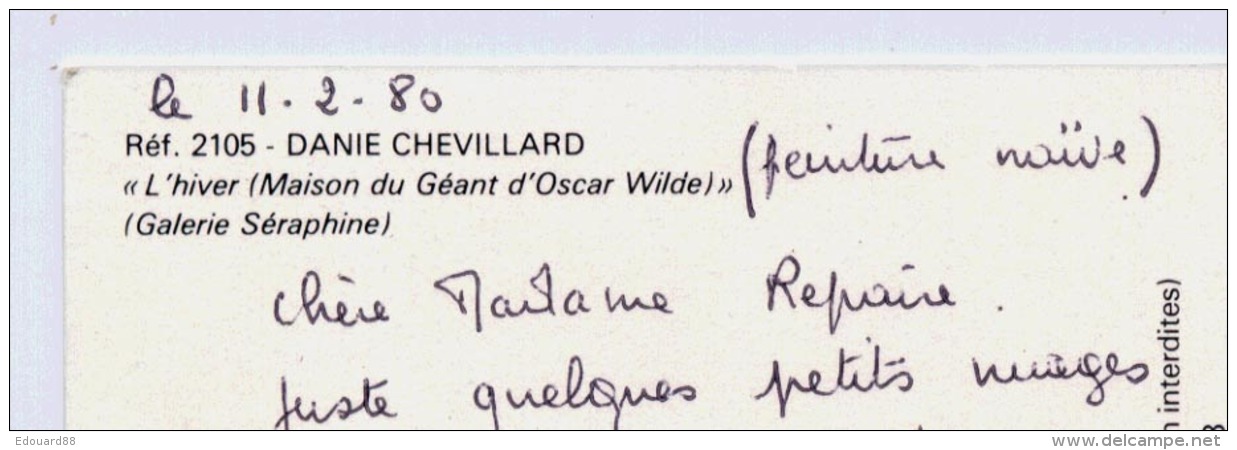 le 11.2.80
Réf. 2105 - DANIE CHEVILLARD
« L'hiver (Maison du Géant d'Oscar Wilde) »
(Galerie Séraphine)
(peinture naïve)
chère Madame Repaire.
Juste quelques petits nuages
n interdites)
Edouard88
www.delcampe.net